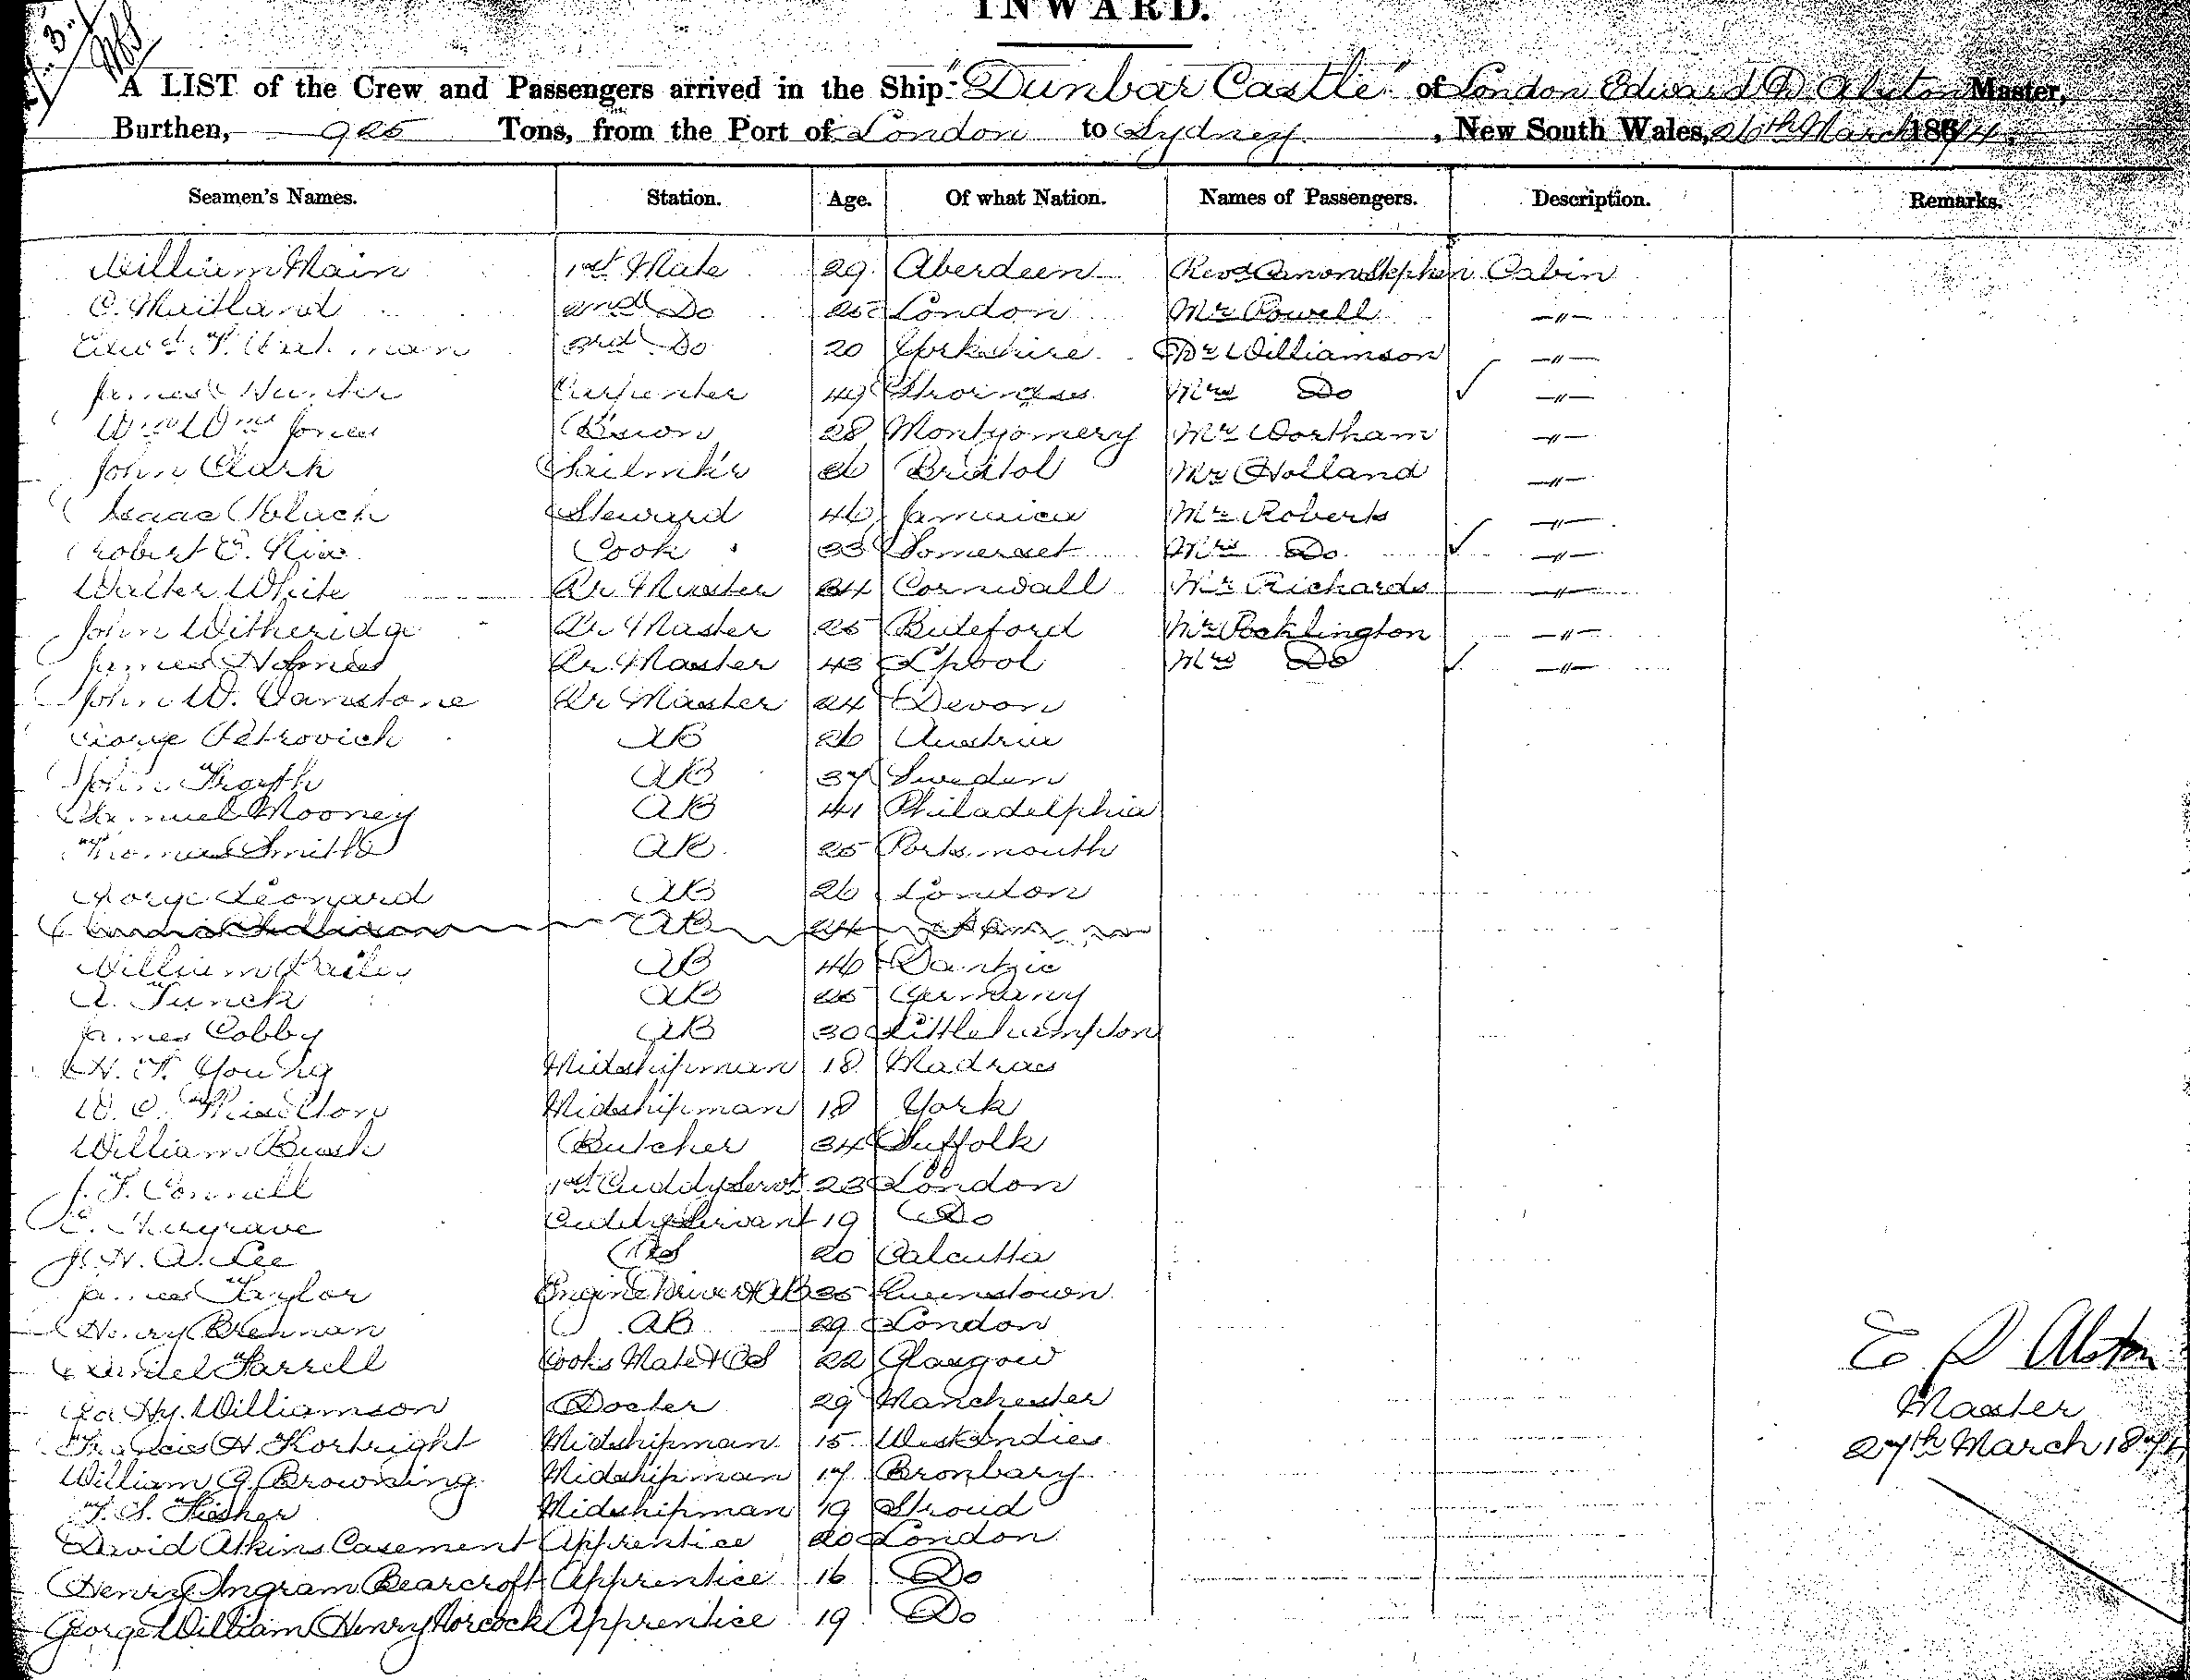 INWARD.
A LIST of the Crew and Passengers arrived in the Ship "Dunbar Castle" of London Edward D. Alston Master,
Burthen, 925 Tons, from the Port of London to Sydney, New South Wales, 26th March 1874.
Seamen's Names. Station. Age. Of what Nation. Names of Passengers. Description. Remarks.
William Main 1st Mate 29 Aberdeen Revd Canon Stephen Cabin
C. Maitland 2nd Do 25 London Mr Powell —"—
3rd Do 20 Yorkshire Dr Williamson —"—
James Hunter Carpenter 49 Mrs Do ✓ —"—
Wm Wm Jones Bosn 28 Montgomery Mr Wortham —"—
John Clark Sailmkr 26 Bristol Mr Holland —"—
Isaac Black Steward 46 Jamaica Mr Roberts —"—
Robert E. Nix Cook 33 Somerset Mrs Do ✓ —"—
Walter White Qr Master 34 Cornwall Mr Richards —"—
John Witheridge Qr Master 25 Bideford Mr Pocklington —"—
James Holmes Qr Master 43 Lpool Mrs Do ✓ —"—
John W. Vanstone Qr Master 24 Devon
George Petrovich AB 26 Austria
John AB 37 Sweden
Samuel Mooney AB 41 Philadelphia
Thomas Smith AB 25 Portsmouth
George Leonard AB 26 London
AB 24
William Bailey AB 46 Dantzic
A. Tunch AB 25 Germany
James Cobby AB 30 Littlehampton
H. F. Young Midshipman 18 Madras
W. C. Midshipman 18 York
William Bush Butcher 34 Suffolk
J. F. Connell 1st Cuddy Servt 23 London
C. Hargrave Cuddy Servant 19 Do
J. H. A. Lee OS 20 Calcutta
James Taylor Engine Driver & AB 35 Queenstown
Henry Brennan AB 29 London
Daniel Farrell Cooks Mate & OS 22 Glasgow
Hy. Williamson Docter 29 Manchester
Francis H. Kortright Midshipman 15 West Indies
William G. Browning Midshipman 17 Bronbary
F. S. Fisher Midshipman 19 Stroud
David Atkins Casement Apprentice 20 London
Henry Ingram Bearcroft Apprentice 16 Do
George William Henry Norcock Apprentice 19 Do
E D Alston
Master
27th March 1874